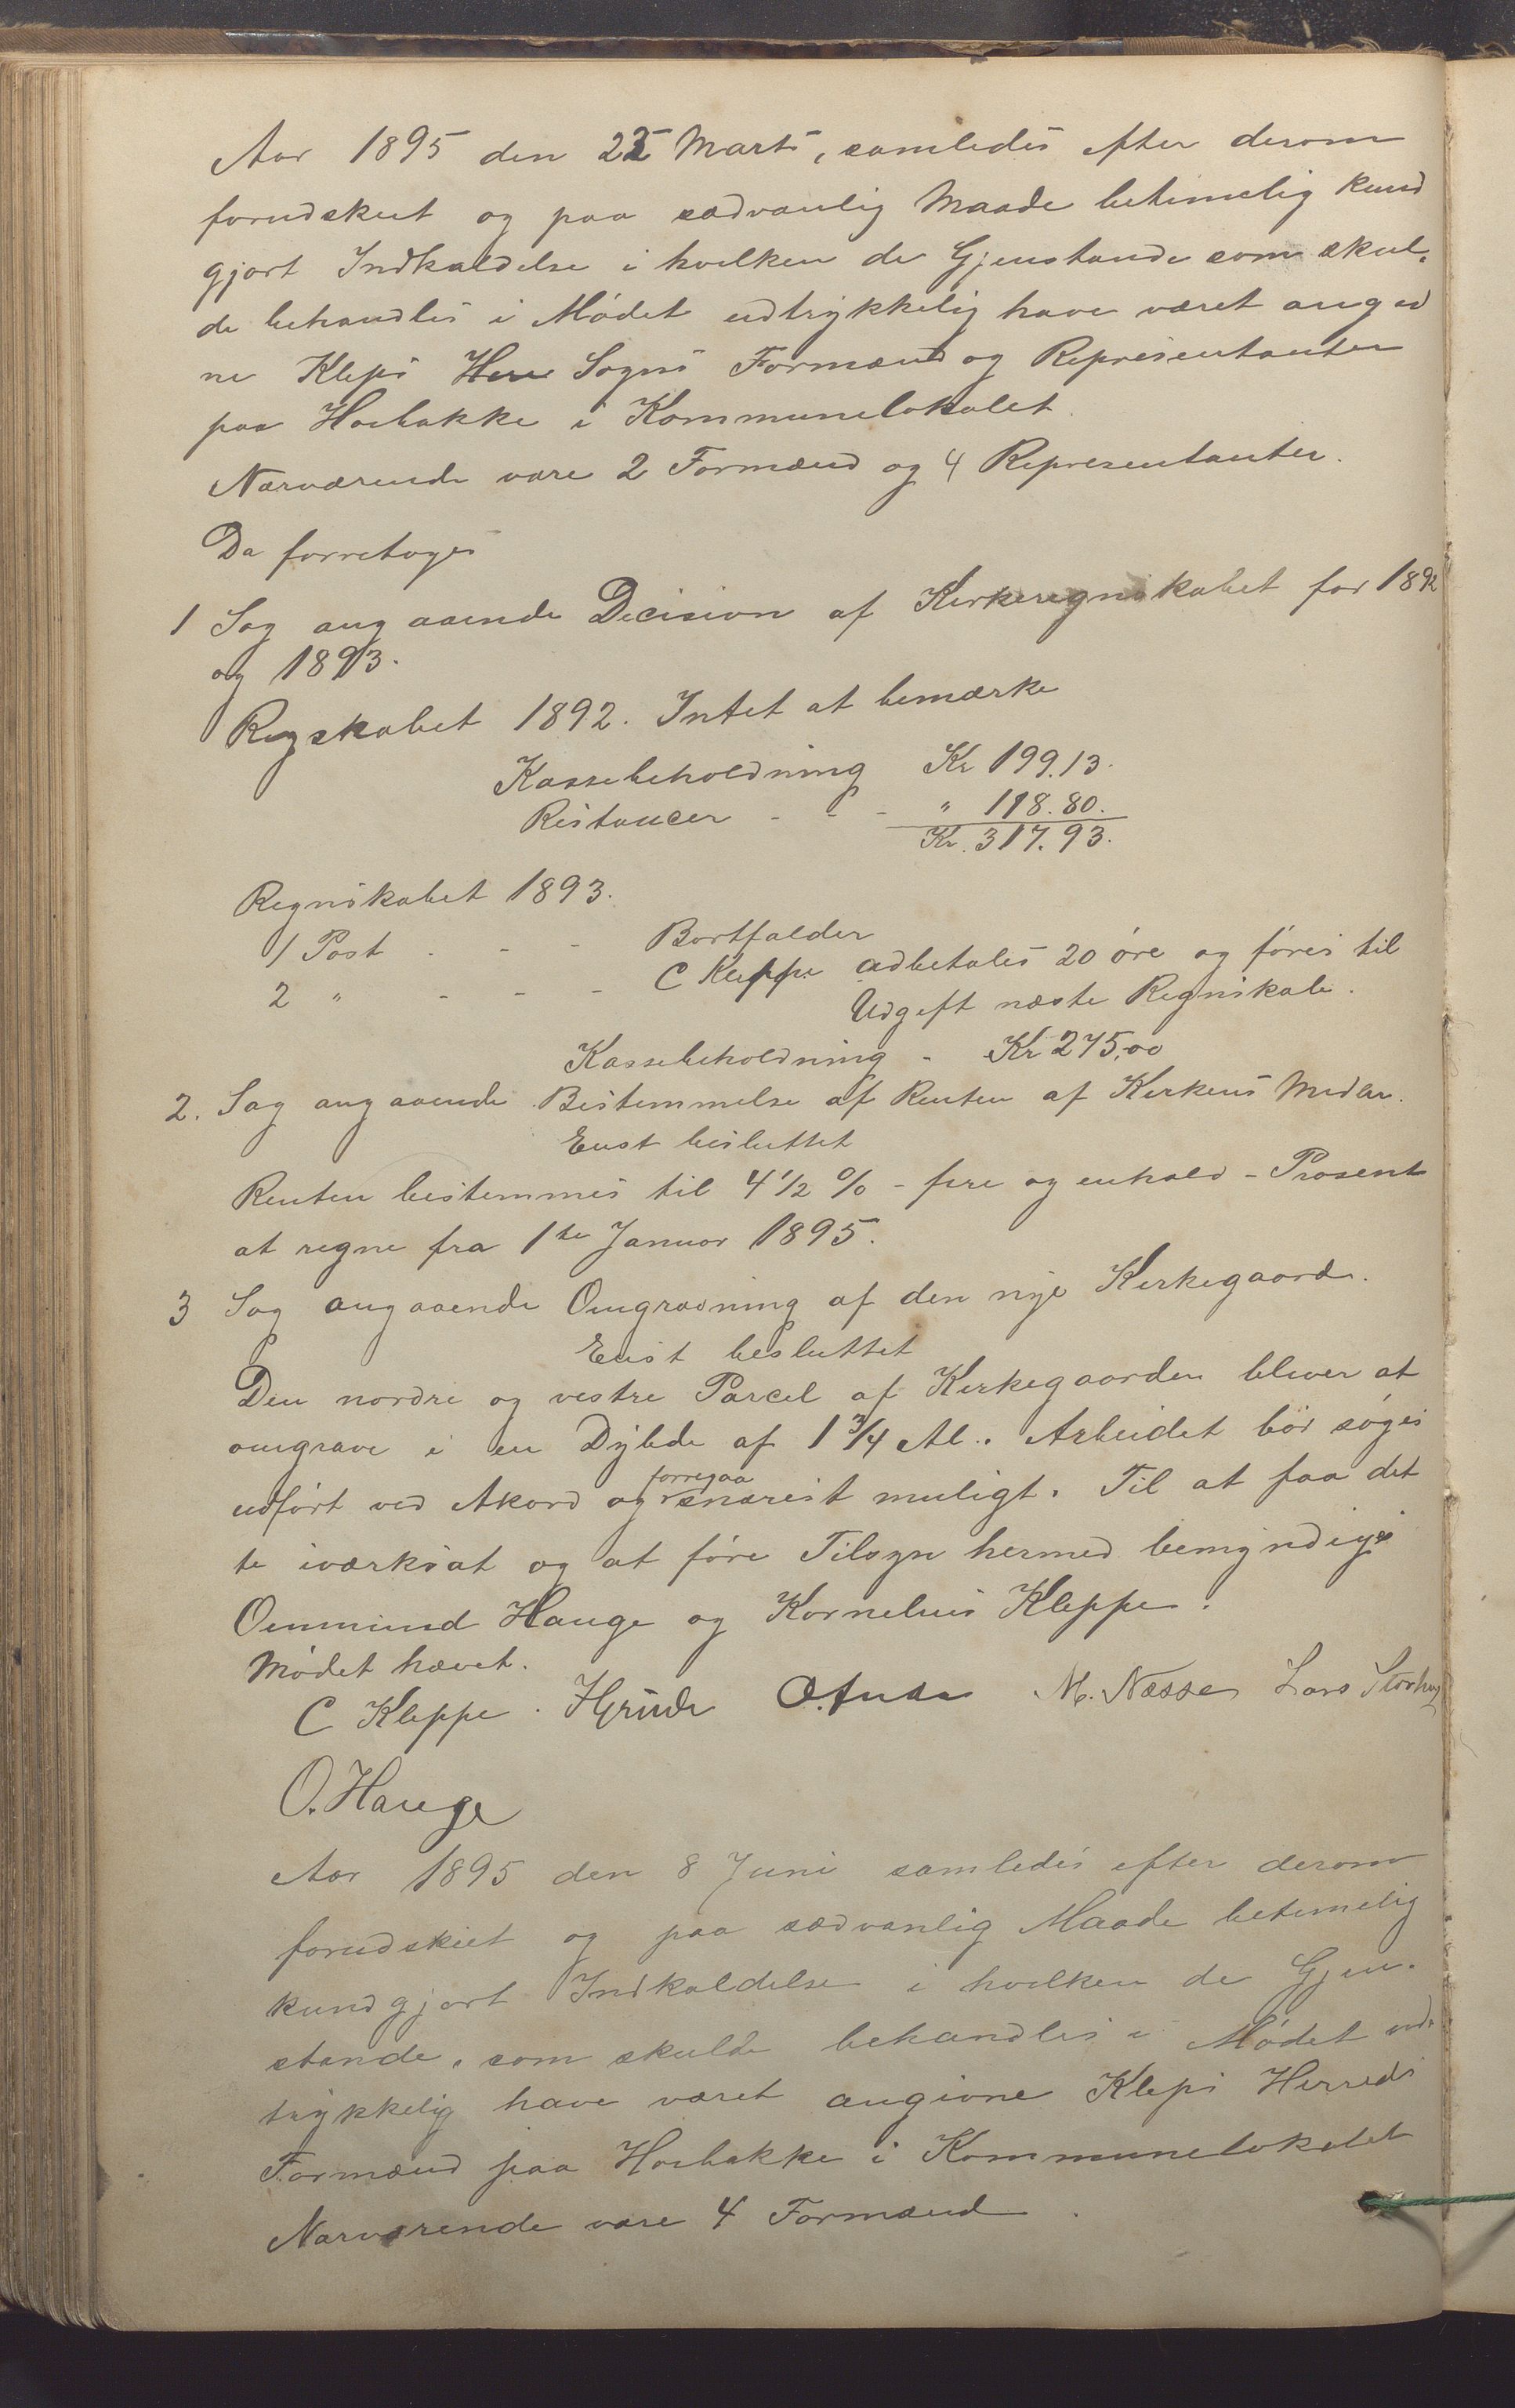 Aar 1895 den 22 Marts, samledes efter derom
forudskeet og paa sædvanlig Maade betimelig kund
gjort Indkaldelse i hvilken de Gjenstande som skul-
de behandles i Mødet udtrykkelig have været angiv
ne Kleps Sogns Formænd og Representanter
paa Hoebakke i Kommunelokalet
Nærværende vare 2 Formænd og 4 Representanter.
Da forretoges
1 Sag angaaende Decision af Kirkeregnskabet for 1892
og 1893.
Regskabet 1892. Intet at bemærke
Kassebeholdning Kr 199.13.
Restancer - - - " 118.80.
Kr. 317.93.
Regnskabet 1893.
1 Post - - - Bortfalder
2 " - - - C Kleppe udbetales 20 øre og føres til
Udgift næste Regnskab.
Kassebeholdning - Kr 275,00
2. Sag angaaende Bestemmelse af Renten af Kirkens Midler.
Enst besluttet
Renten bestemmes til 4 1/2 % - fire og enhalv - Prosent
at regne fra 1te Januar 1895.
3 Sag angaaende Omgravning af den nye Kirkegaard.
Enst besluttet
Den nordre og vestre Parcel af Kirkegaarden bliver at
omgrave i en Dybde af 1 3/4 Al.. Arbeidet bør søges
udført ved Akord og forregaa snarest muligt. Til at faa det
te iværksat og at føre Tilsyn hermed bemyndiges
Ommund Hauge og Kornelius Kleppe.
Mødet hævet.
C Kleppe. M. Næsse Lars Storhug
O. Hauge
Aar 1895 den 8 Juni samledes efter derom
forudskeet og paa sædvanlig Maade betimelig
kundgjort Indkaldelse i hvilken de Gjen-
stande, som skulde behandles i Mødet ud-
trykkelig have været angivne Kleps Herreds
Formænd paa Hoebakke i Kommunelokalet
Nærværende vare 4 Formænd